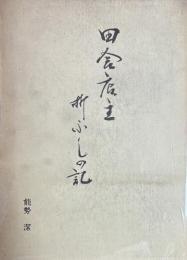 田舎店主
折ふしの記
能勢 潔